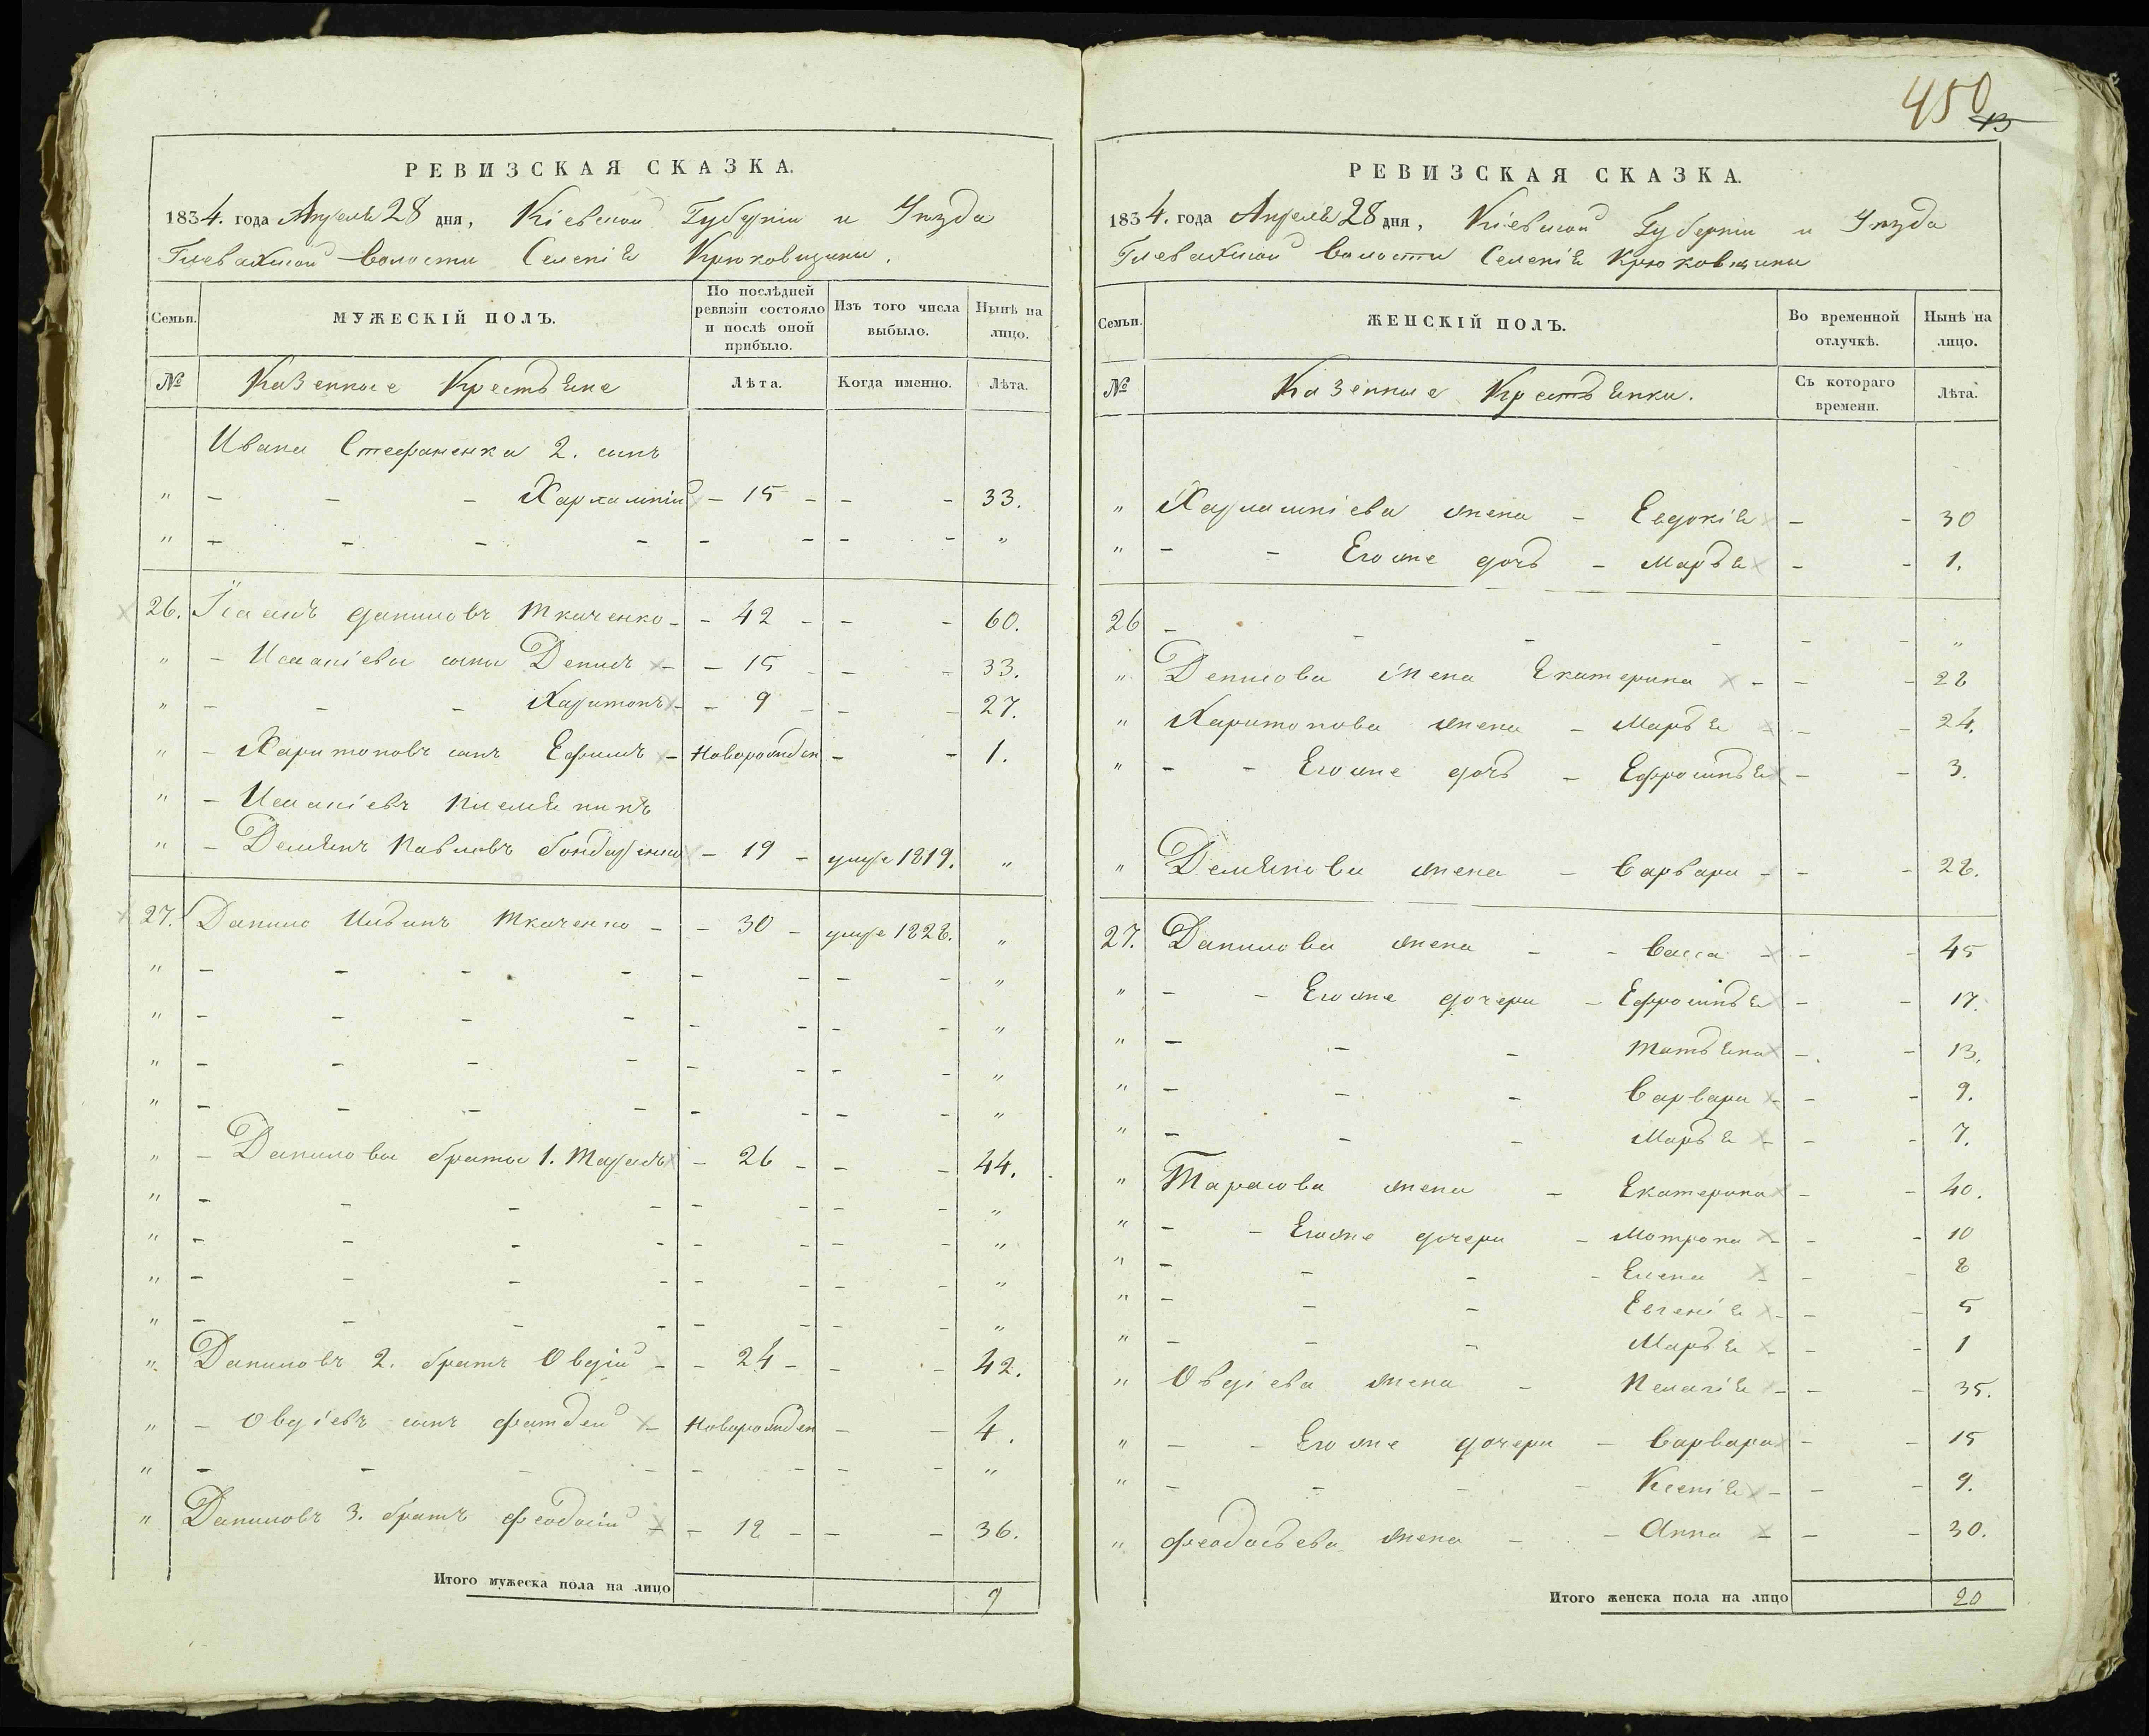 450
13
РЕВИЗСКАЯ СКАЗКА.
1834. года Апреля 28 дня, Кіевской Губерніи и Уезда
Глевахской Волости Селенія Крюковщины.
Семьи.
МУЖЕСКІЙ ПОЛЪ.
По послѣдней ревизіи состояло и послѣ оной прибыло.
Изъ того числа выбыло.
Нынѣ на лицо.
№ Казенные Крестьяне
Лѣта. Когда именно. Лѣта.
Ивана Стефаненка 2. сынъ
" - - - Харлампій - 15 - - - 33.
" - - - - - - - - "
26. Даниловъ Ткаченко - - 42 - - - 60.
" - сыны Денисъ - - 15 - - - 33.
" - - - Харитонъ - - 9 - - - 27.
" - Харитоновъ сынъ Ефимъ - Новорожден - - 1.
" - племянникъ
" - Демянъ Павловъ - 19 - умре 1819. "
27. Данило Ткаченко - - 30 - умре 1828. "
" - - - - - - - - "
" - - - - - - - - "
" - - - - - - - - "
" - - - - - - - - "
" - Даниловы братья 1. Тарасъ - 26 - - - 44.
" - - - - - - - - "
" - - - - - - - - "
" - - - - - - - - "
" - - - - - - - - "
" Даниловъ 2. братъ Овдій - - 24 - - - 42.
" - Овдіевъ сынъ Фатдей - Новорожден - - 4.
" - - - - - - - - "
" Даниловъ 3. братъ Феодосій - - 18 - - - 36.
Итого мужеска пола на лицо 9
РЕВИЗСКАЯ СКАЗКА.
1834. года Апреля 28 дня, Кіевской Губерніи и Уезда
Глевахской Волости Селенія Крюковщины
Семьи.
ЖЕНСКІЙ ПОЛЪ.
Во временной отлучкѣ.
Нынѣ на лицо.
№ Казенные Крестьянки.
Съ котораго времени. Лѣта.
" Харлампіева жена - Евдокія - - 30
" - - Егоже дочь - Марья - - 1.
26 - - - - - - "
" Денисова жена Екатерина - - - 28
" Харитонова жена - Марья - - - 24.
" - - Егоже дочь - Ефросинья - - 3.
" Демянова жена - Варвара - - - 28.
27. Данилова жена - - Васса - - - 45
" - - Егоже дочери - Ефросинья - - 17.
" - - - Татьяна - - 13.
" - - - Варвара - - - 9.
" - - - Марья - - - 7.
" Тарасова жена - Екатерина - - 40.
" - - Егоже дочери - Мотрона - - - 10
" - - - - Елена - - - 8
" - - - Евгенія - - - 5
" - - - Марья - - - 1
" Овдіева жена - Пелагія - - - 35.
" - - Егоже дочери - Варвара - - 15
" - - - - Ксенія - - - 9.
" Феодосьева жена - - Анна - - - 30.
Итого женска пола на лицо 20